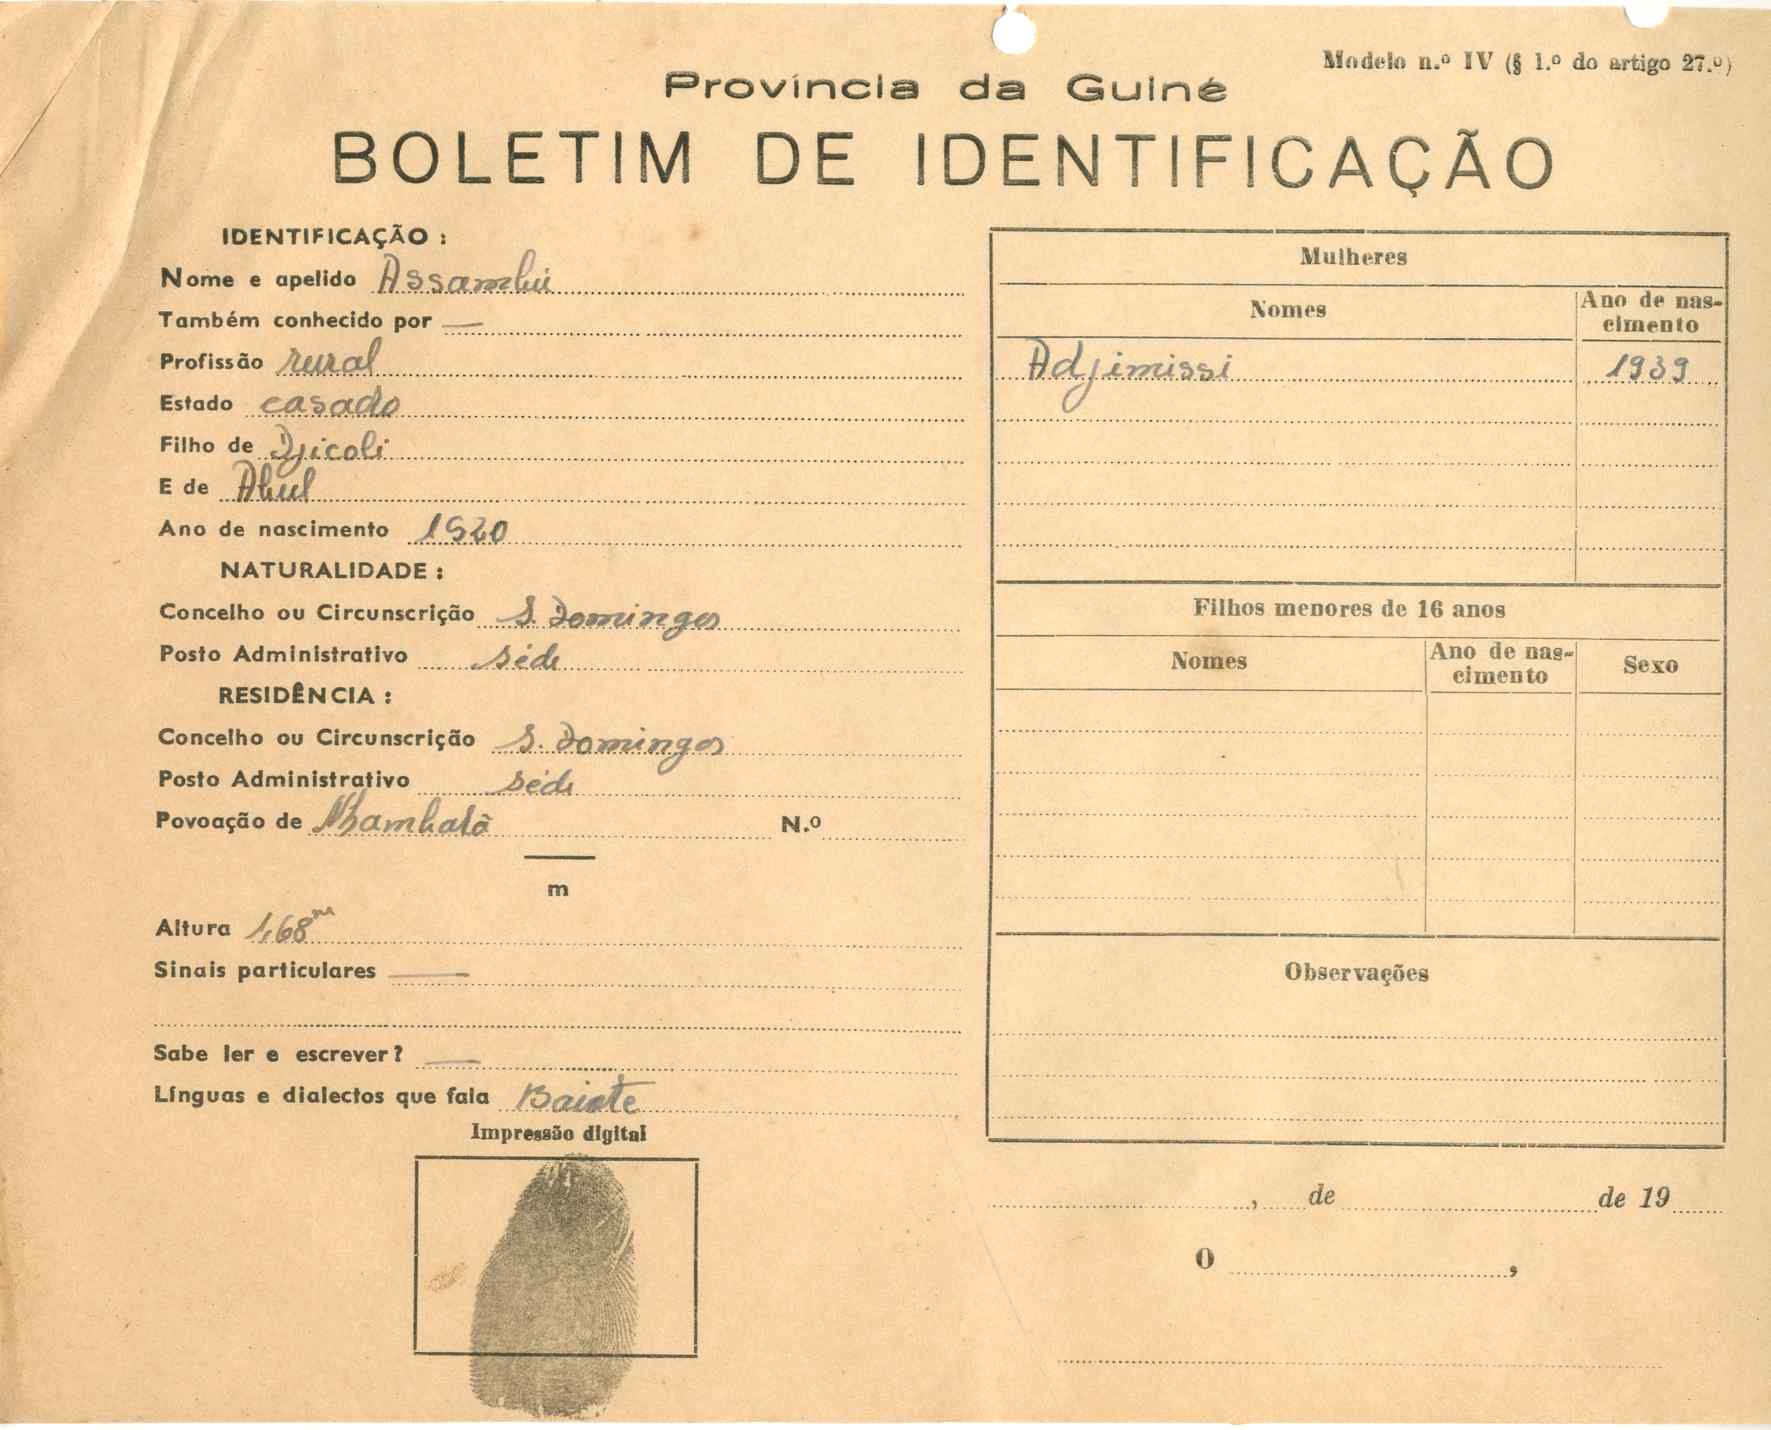 Modelo n.º IV (§ 1.º do artigo 27.º)
Província da Guiné
BOLETIM DE IDENTIFICAÇÃO
IDENTIFICAÇÃO :
Nome e apelido Assambú
Também conhecido por —
Profissão rural
Estado casado
Filho de Djicoli
E de
Ano de nascimento 1920
NATURALIDADE :
Concelho ou Circunscrição S. Domingos
Posto Administrativo séde
RESIDÊNCIA :
Concelho ou Circunscrição S. Domingos
Posto Administrativo séde
Povoação de N.º
m
Altura 1,68 m
Sinais particulares —
Sabe ler e escrever? —
Línguas e dialectos que fala Baiote
Impressão digital
Mulheres
Nomes Ano de nas-
cimento
Adjimissi 1939
Filhos menores de 16 anos
Nomes Ano de nas-
cimento Sexo
Observações
, de de 19
O ,